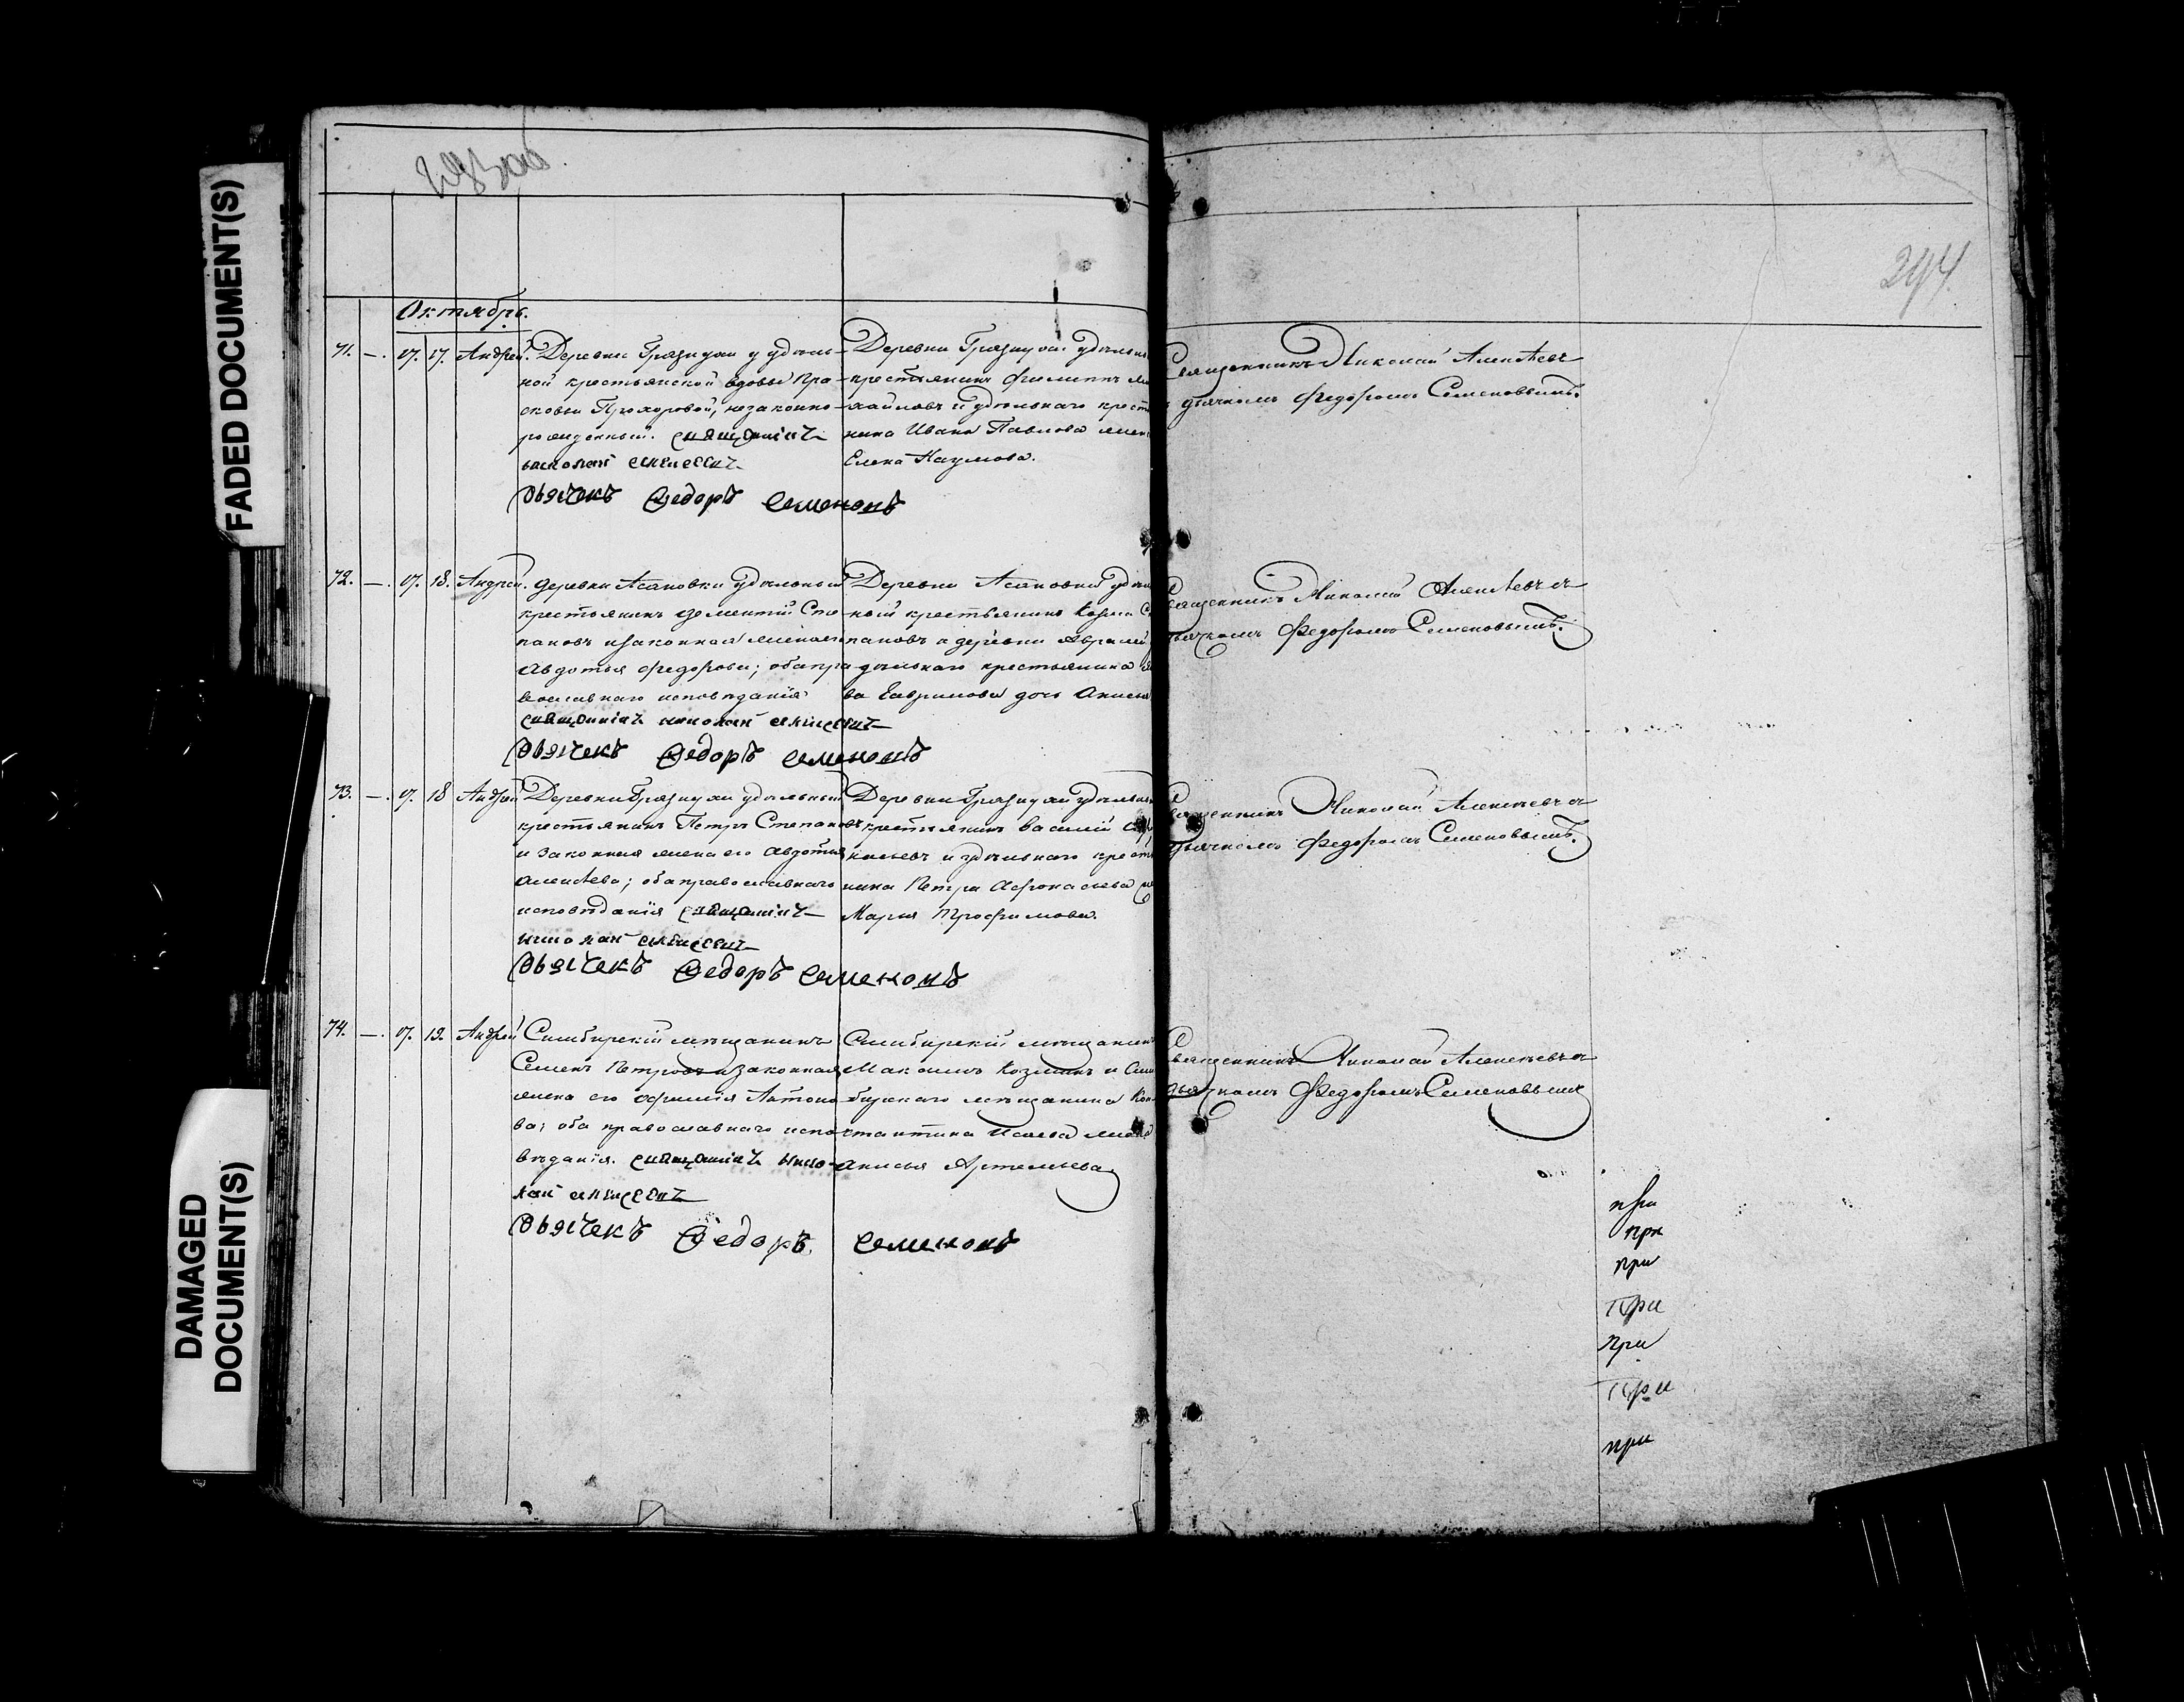 FADED DOCUMENT(S)
DAMAGED DOCUMENT(S)
294
Октябрь.
71. — 17. 17. Андрей.
Деревни Грязнухи у удѣль-
ной крестьянской вдовы Пра-
сковьи Прохоровой, незаконно-
рожденный. Священникъ
Николай Алексеевъ
Дьячекъ Федоръ Семеновъ
Деревни Грязнухи удѣльны
крестьянинъ Филиппъ Ми
хайловъ и удѣльнаго крестья
нина Ивана Павлова жена
Елена Наумова.
Священникъ Николай Алексѣевъ
дьячкомъ Федоромъ Семеновымъ.
72. — 17. 18. Андрей.
Деревни Асановки удѣльный
крестьянинъ Дементій Сте
пановъ и законная жена его
Авдотья Федорова; оба пра
вославнаго исповѣданія
Священникъ Николай Алексеевъ
Дьячекъ Федоръ Семеновъ
Деревни Асановки удѣль
ный крестьянинъ Козма Ст
пановъ и деревни
дѣльнаго крестьянина
ва Гаврилова дочь Анисья
Священникъ Николай Алексѣевъ съ
дьячкомъ Федоромъ Семеновымъ.
73. — 17. 18 Андрей
Деревни Грязнухи удѣльный
крестьянинъ Петръ Степановъ
и законная жена его Авдотья
Алексѣева; оба православнаго
исповѣданія Священникъ
Николай Алексеевъ
Дьячекъ Федоръ Семеновъ
Деревни Грязнухи удѣльны
крестьянинъ Василій
и удѣльнаго крестья
нина Петра Афонасьева
Марья Трофимова.
Священникъ Николай Алексѣевъ съ
дьячкомъ Федоромъ Семеновымъ.
74. — 17. 19. Андрей
Симбирскій мѣщанинъ
Семенъ Петровъ и законная
жена его Афимія Антоно
ва; оба православнаго испо
вѣданія. Священникъ Нико-
лай Алексеевъ
Дьячекъ Федоръ Семеновъ
Симбирскій мѣщанинъ
Максимъ Козминъ и Сим
бирскаго мѣщанина Кон
стантина Исаева жена
Анисья Артемьева
Священникъ Николай Алексѣевъ съ
дьячкомъ Федоромъ Семеновымъ
при
при
при
При
при
При
при